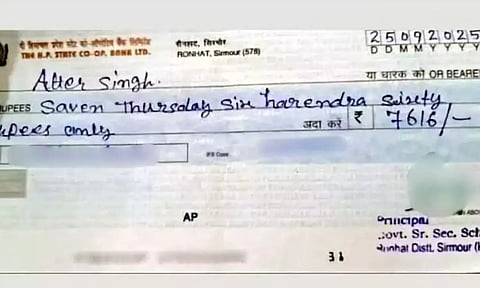 दी हिमाचल प्रदेश स्टेट को-ऑपरेटिव बैंक लिमिटेड
THE H.P. STATE CO-OP. BANK LTD.
रोनहाट, सिरमौर
RONHAT, Sirmour (578)
25092025
D D M M Y Y Y Y
Atter Singh.
या धारक को OR BEARE
UPEES Saven Thursday Six harendra Sixety
upees only
अदा करें ₹ 7616/-
IFS Code
AP
Principal
Govt. Sr. Sec. Sch
Ronhat Distt. Sirmour (H
31